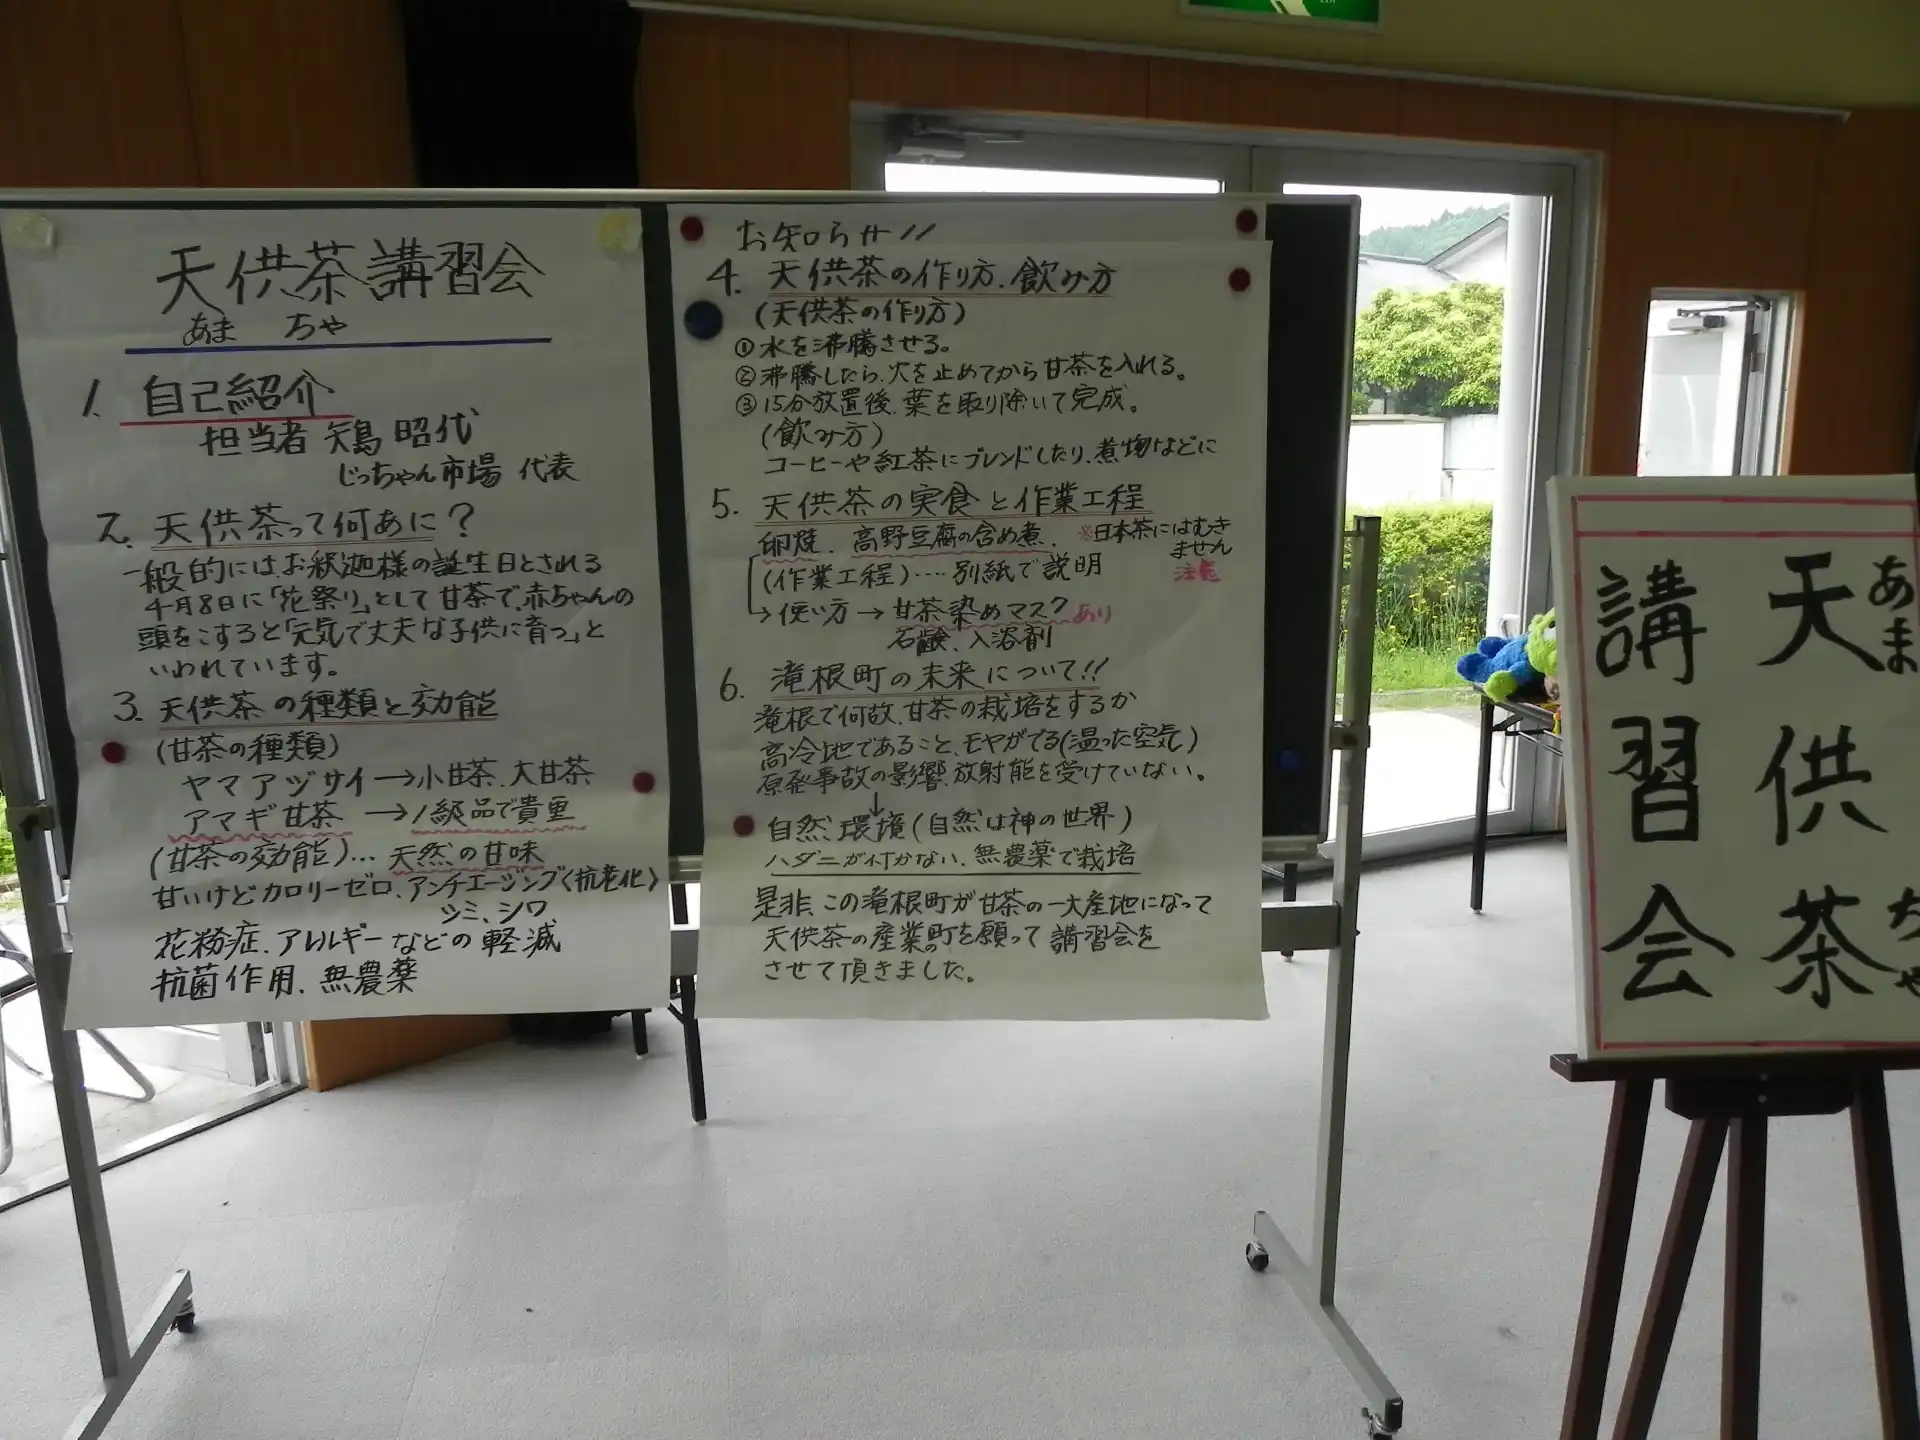 天供茶講習会
あま ちゃ
1. 自己紹介
担当者 矢島 昭代
じっちゃん市場 代表
2. 天供茶って何あに?
一般的にはお釈迦様の誕生日とされる
4月8日に「花祭り」として甘茶で、赤ちゃんの
頭をこすると「元気で丈夫な子供に育つ」と
いわれています。
3. 天供茶の種類と効能
(甘茶の種類)
ヤマアヅサイ→小甘茶、大甘茶
アマギ甘茶 →1級品で貴重
(甘茶の効能)… 天然の甘味
甘いけどカロリーゼロ、アンチエージング〈抗老化〉
シミ、シワ
花粉症、アレルギーなどの軽減
抗菌作用、無農薬
お知らせ!!
4. 天供茶の作り方、飲み方
(天供茶の作り方)
① 水を沸騰させる。
② 沸騰したら、火を止めてから甘茶を入れる。
③ 15分放置後、葉を取り除いて完成。
(飲み方)
コーヒーや紅茶にブレンドしたり、煮物などに
5. 天供茶の実食と作業工程
卵焼、高野豆腐の含め煮、 ※日本茶にはむき
ません
(作業工程)‥‥別紙で説明
→使い方→甘茶染めマスクあり
石鹸、入溶剤
6. 滝根町の未来について!!
滝根で何故、甘茶の栽培をするか
高冷地であること、モヤがでる(温った空気)
原発事故の影響、放射能を受けていない。
↓
自然環境(自然は神の世界)
ハダニが付かない、無農薬で栽培
是非、この滝根町が甘茶の一大産地になって
天供茶の産業の町を願って講習会を
させて頂きました。
天供茶
あま ちゃ
講習会